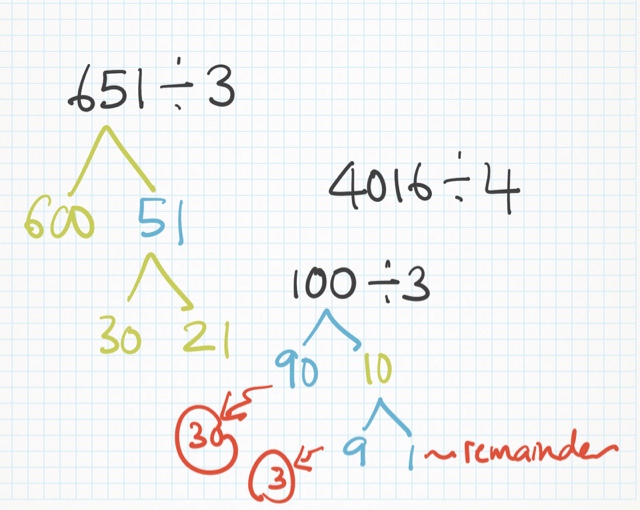 651÷3
600 51
30 21
4016÷4
100÷3
90 10
30
9 1 ~remainder
3